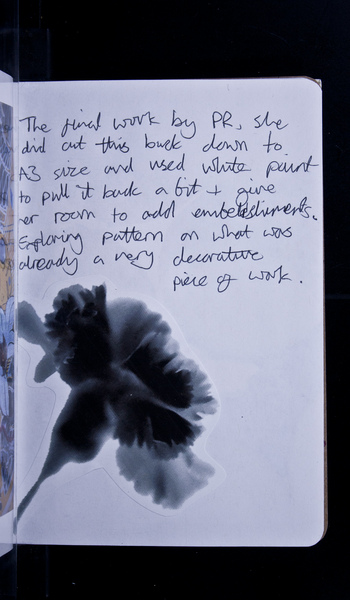 The final work by PR, she
did cut this back down to
A3 size and used white paint
to pull it back a bit + give
er room to add embelishments.
Exploring pattern on what was
already a very decorative
piece of work.